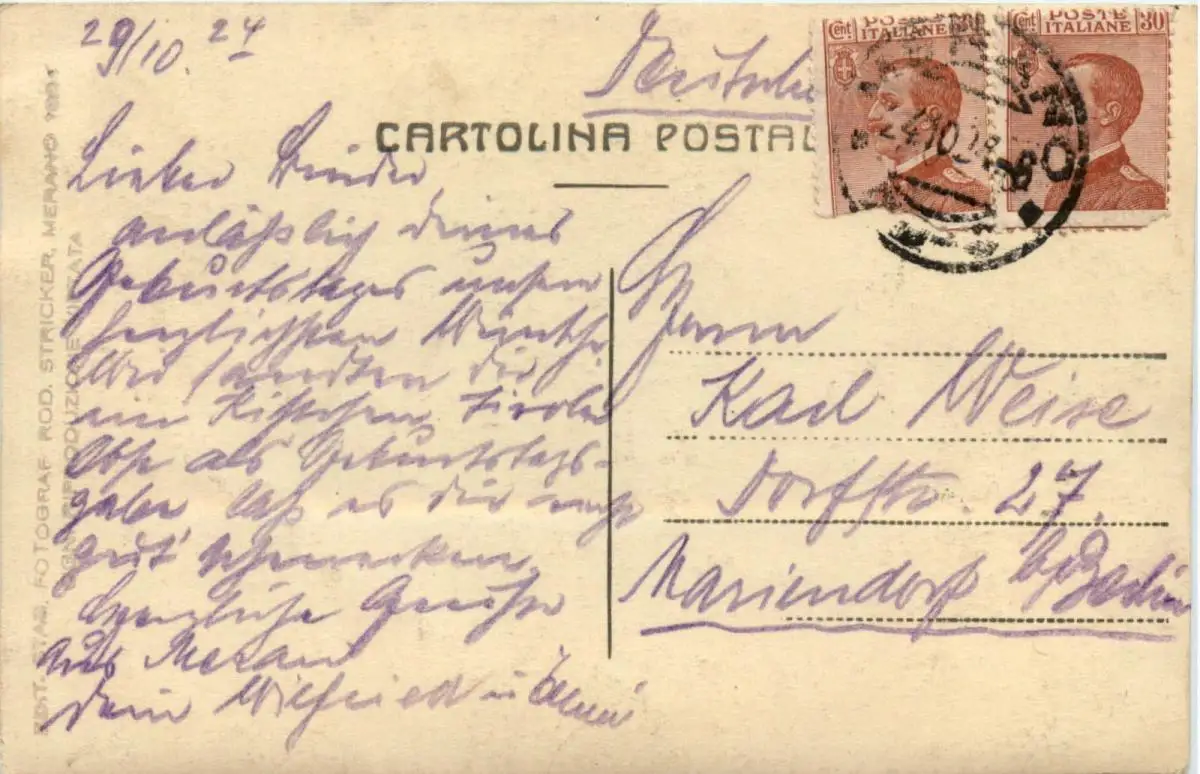 29/10. 24
Deutschl
CARTOLINA POSTAL
Cent POSTE 30
ITALIANE
Cent POSTE 30
ITALIANE
Lieber Bruder,
anläßlich deines
Geburtstages unsern
herzlichsten Wünsche
Wir sandten dir
ein Kistchen Tiroler
Obst als Geburtstags-
gabe, laß es dir recht
gut schmecken.
Herzliche Grüße
aus Meran
dein Wilfried u.
Herrn
Karl Weise
Dorfstr. 27.
Mariendorf b/Berlin
EDIT. STAB. FOTOGRAF ROD. STRICKER, MERANO
RIPRODUZIONE VIETATA